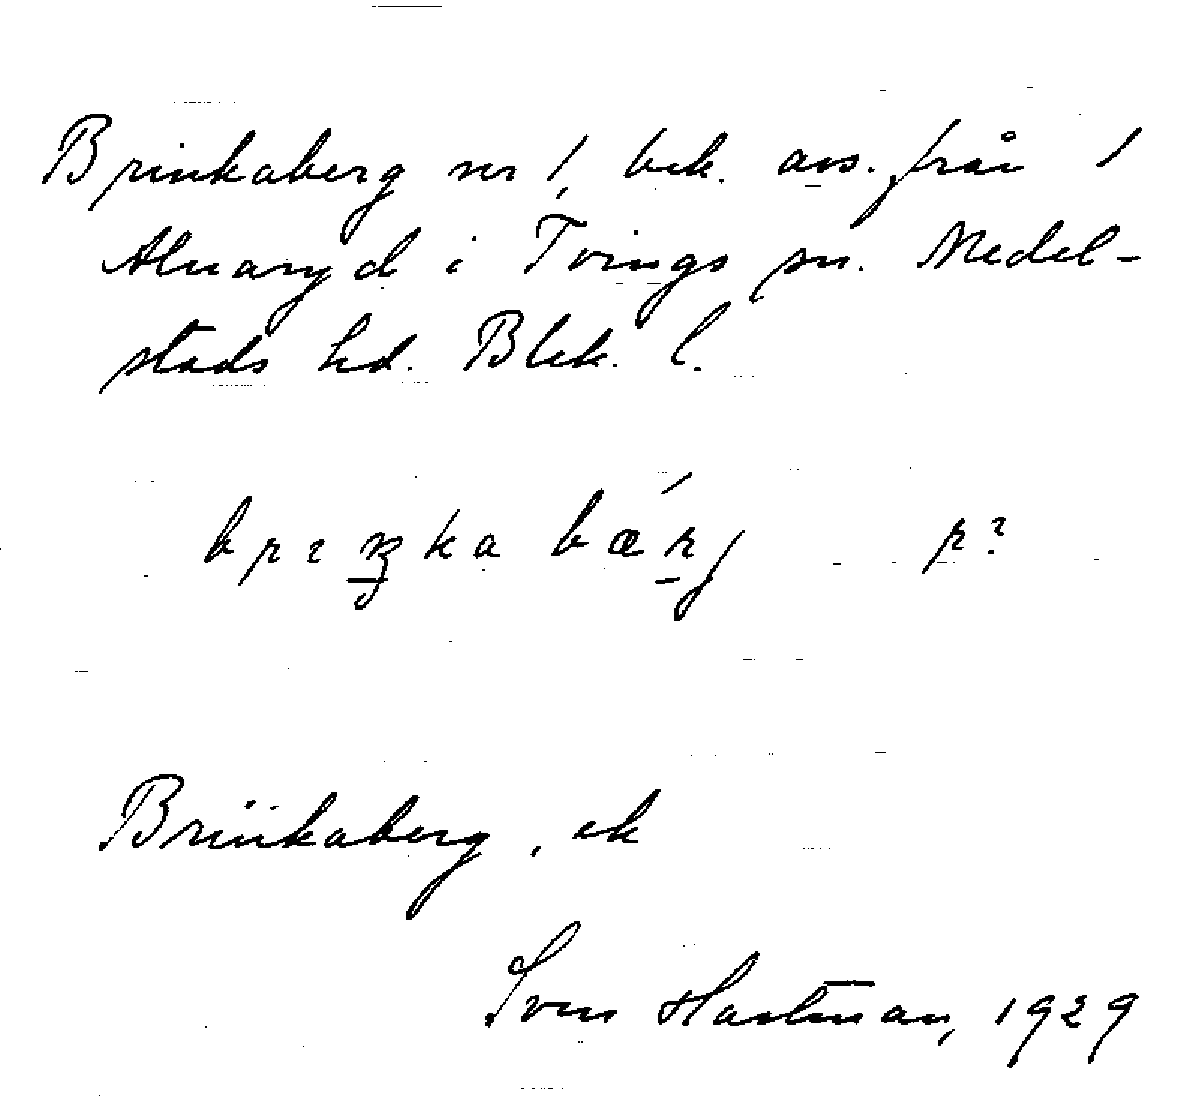 Brinkaberg nr 1, bek. avs. från 1
Alnaryd i Tvings sn. Medel-
stads hd. Blek. l.
bæ r?
Brinkaberg, ek
Sven Hartman, 1929